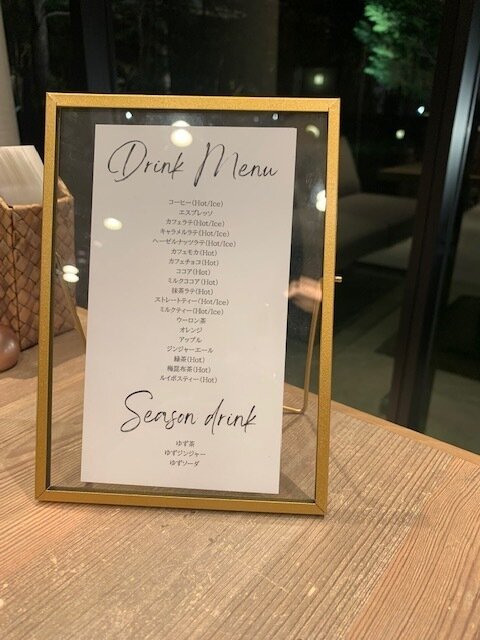 Drink Menu
コーヒー(Hot/Ice)
エスプレッソ
カフェラテ(Hot/Ice)
キャラメルラテ(Hot/Ice)
ヘーゼルナッツラテ(Hot/Ice)
カフェモカ(Hot)
カフェチョコ(Hot)
ココア(Hot)
ミルクココア(Hot)
抹茶ラテ(Hot)
ストレートティー(Hot/Ice)
ミルクティー(Hot/Ice)
ウーロン茶
オレンジ
アップル
ジンジャーエール
緑茶(Hot)
梅昆布茶(Hot)
ルイボスティー(Hot)
Season drink
ゆず茶
ゆずジンジャー
ゆずソーダ